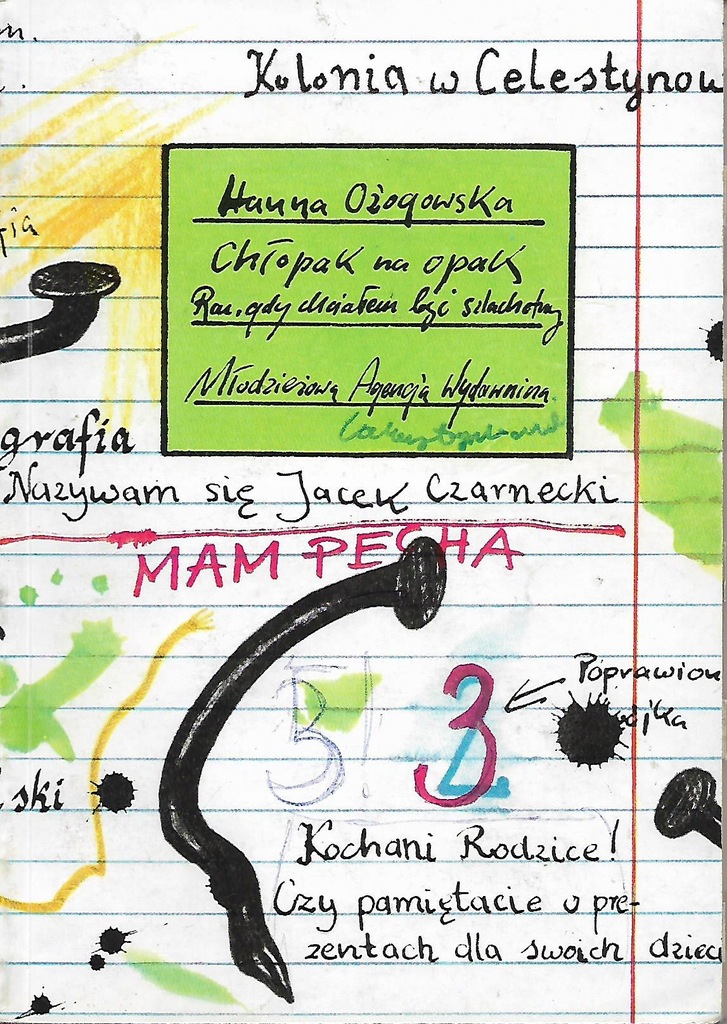 m.
Kolonia w Celestynow
Hanna Ożogowska
Chłopak na opak
Raz, gdy chciałem być szlachetny
Młodzieżowa Agencja Wydawnicza
grafia
Nazywam się Jacek Czarnecki
MAM PECHA
5! 3 2
Poprawion
ójka
ski
Kochani Rodzice!
Czy pamiętacie o pre-
zentach dla swoich dzieci